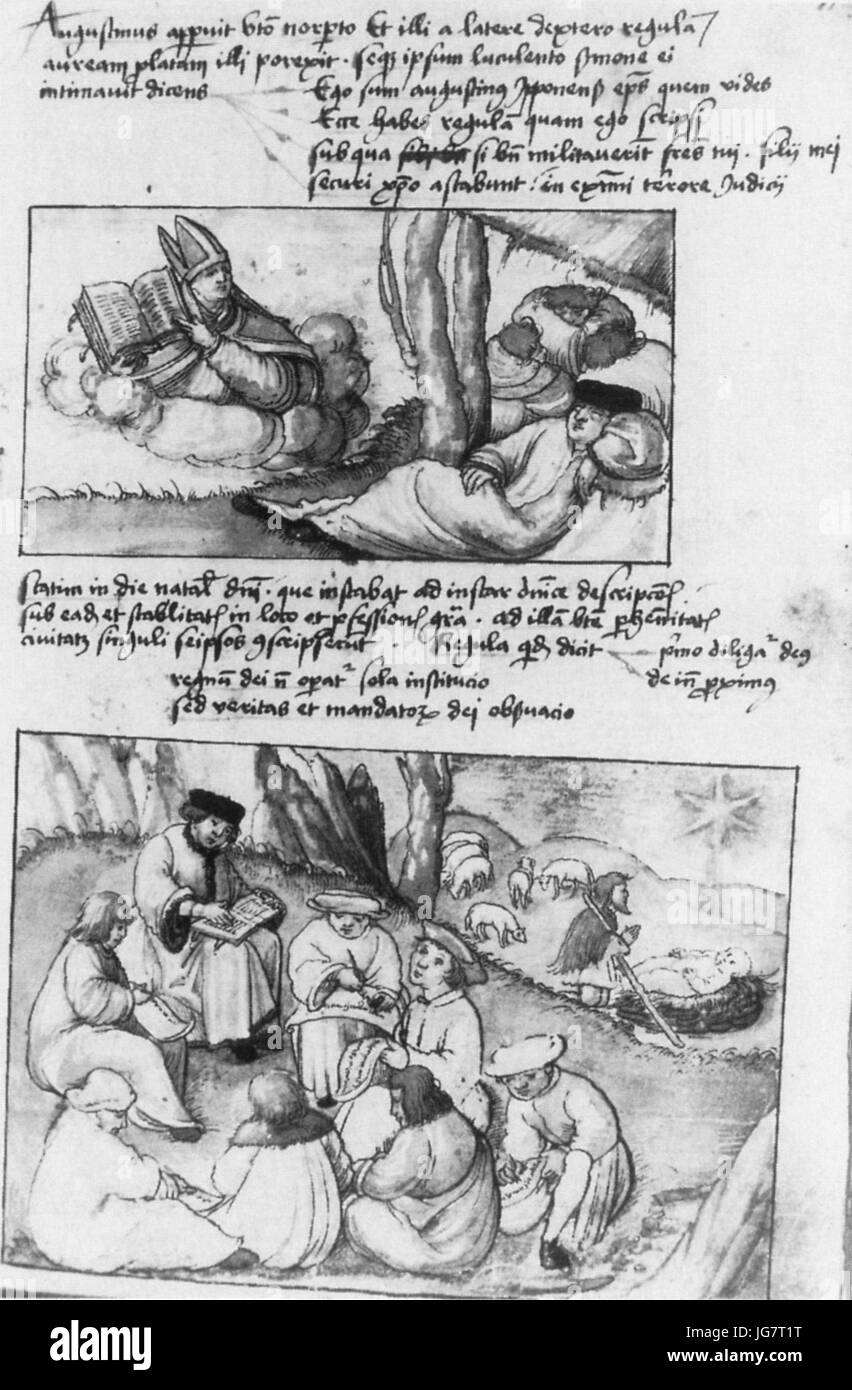 Augustinus apparuit bto norperto Et illi a latere dextero regulā
auream platam illi porexit · seqz ipsum luculento smone ei
intimavit dicens Ego sum augustinus Ipponensis eps quem vides
Ecce habes regulā quam ego scripsi
sub qua si bn militaverint fres tui · filii mei
securi xpo astabunt in extmi terrore Judicii
statim in die natal dni · que instabat ad instar dnice descripcois
sub ead et stabilitatē in loco et pfessionē · ad illā
civitatē singuli seipsos scripserunt · Regula dicit pmo diligatr deus
regnum dei n operatr sola institucio dein proximus
sed veritas et mandatorum dei obsvacio
alamy
alamy stock photo
JG7T1T
www.alamy.com